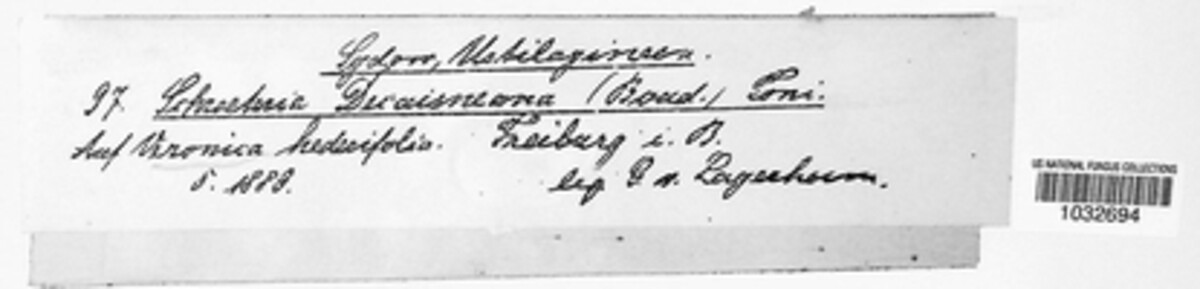 Sydow, Ustilagineen.
97. Schroeteria Decaisneana (Boud.) Toni.
Auf Veronica hederifolia. Freiburg i. B.
5. 1889.
leg G. v. Lagerheim.
US NATIONAL FUNGUS COLLECTIONS
1032694